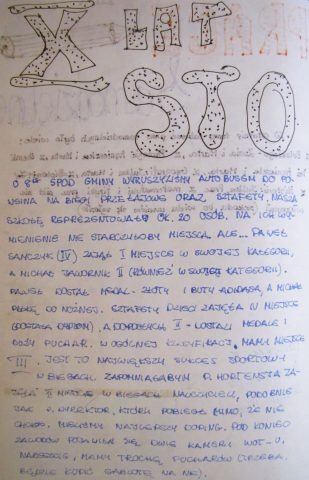 X LAT
STO
O 8⁰⁰ SPOD GMINY WYRUSZYLIŚMY AUTOBUSEM DO
NA BIEGI PRZEŁAJOWE ORAZ SZTAFETY. NASZĄ
SZKOŁĘ REPREZENTOWAŁO OK. 20 OSÓB, NA ICH WY-
MIENIENIE NIE STARCZYŁOBY MIEJSCA, ALE... PAWEŁ
(IV) ZAJĄŁ I MIEJSCE W SWOJEJ KATEGORII,
A MICHAŁ JAWORNIK II (RÓWNIEŻ W SWOJEJ KATEGORII).
PAWEŁ DOSTAŁ MEDAL - ZŁOTY I BUTY ADIDASA, A MICHAŁ
PIŁKĘ DO NOŻNEJ. SZTAFETY DZIECI ZAJĘŁA IV MIEJSCE
(DOSTAŁA DYPLOM), A DOROSŁYCH II - DOSTALI MEDALE I
DUŻY PUCHAR. W OGÓLNEJ KLASYFIKACJI MAMY MIEJSCE
III. JEST TO NAJWIĘKSZY SUKCES SPORTOWY
W BIEGACH. ZAPOMNIAŁABYM P. HORTENSJA ZA-
JĘŁA II MIEJSCE W BIEGACH NAUCZYCIELI, PODOBNIE
JAK P. DYREKTOR, KTÓRY POBIEGŁ MIMO, ŻE NIE
CHCIAŁ, MIELIŚMY NAJLEPSZY DOPING. POD KONIEC
ZAWODÓW POJAWIŁA SIĘ DWIE KAMERY WOT-U,
NARESZCIE, MAMY TROCHĘ PUCHARÓW (TRZEBA
BĘDZIE KUPIĆ GABLOTĘ NA NIE).